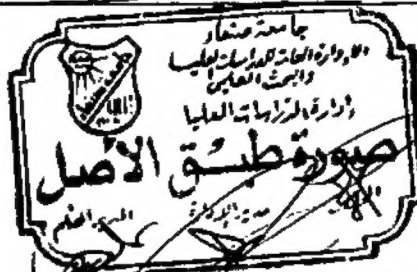 جامعة صنعاء
الإدارة العامة للدراسات العليا
والبحث العلمي
إدارة الدراسات العليا
صورة طبق الأصل
مدير الإدارة